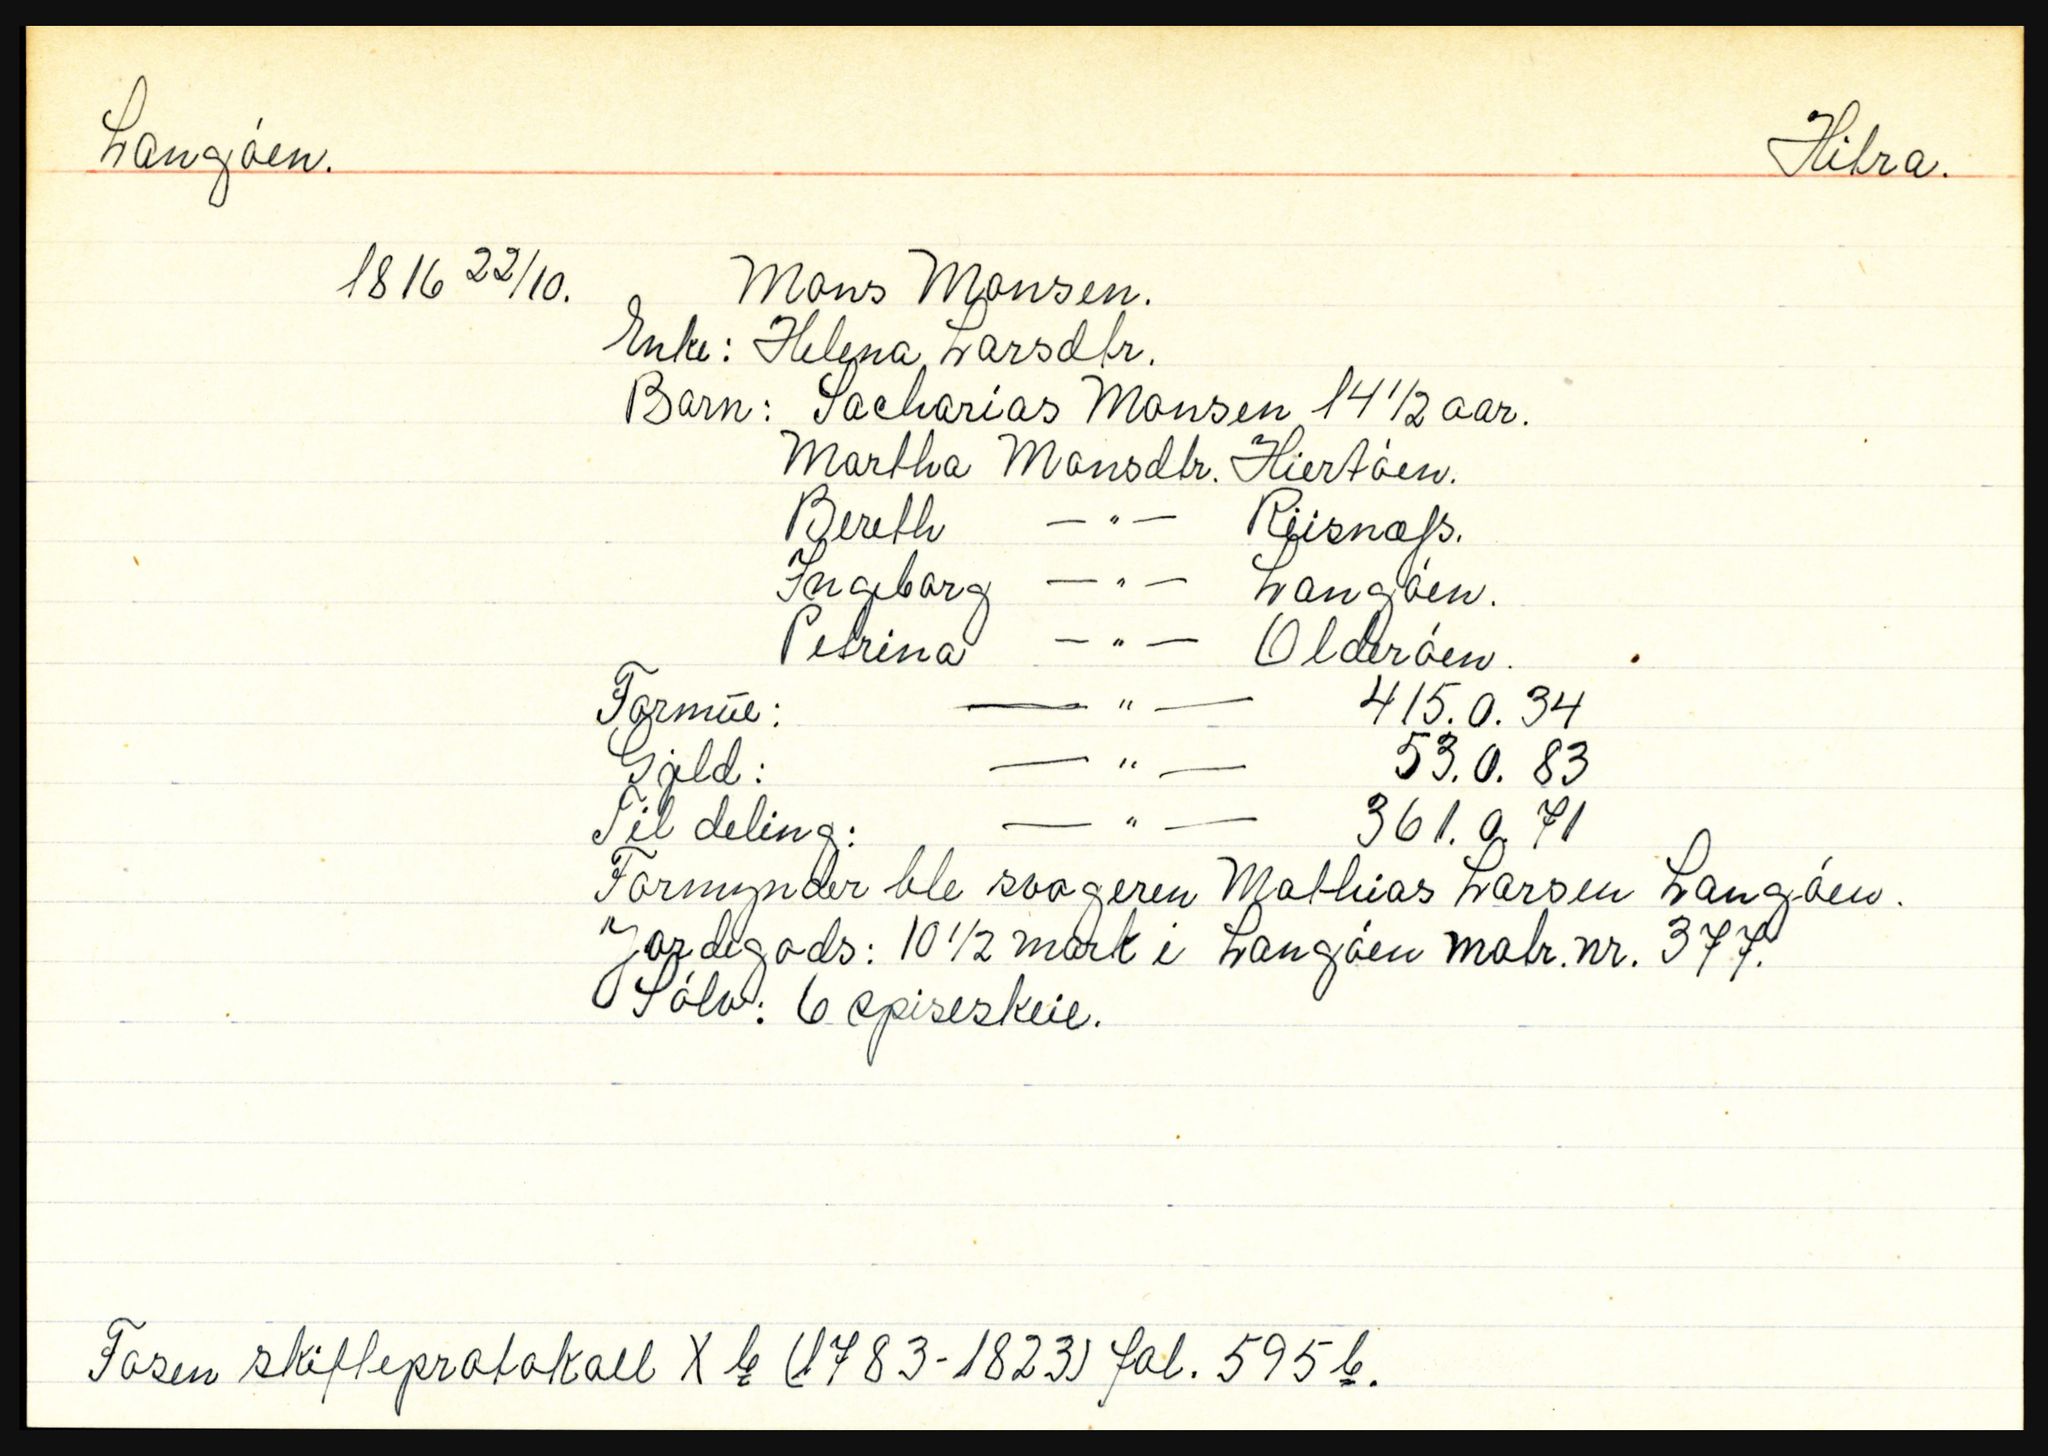 Langøen. Hitra.
1816 22/10. Mons Monsen.
Enke: Helena Larsdtr.
Barn: Sacharias Monsen 14 1/2 aar.
Martha Monsdtr. Hiertøen.
Bereth — " — Riisnæss.
Ingeborg — " — Langøen.
Petrina — " — Olderøen.
Formue: — " — 415. 0. 34
Gjeld: — " — 53. 0. 83
Til deling: — " — 361. 0. 71
Formynder ble svogeren Mathias Larsen Langøen.
Jordegods: 10 1/2 mark i Langøen matr. nr. 377.
Sølv: 6 spiseskeie.
Fosen skifteprotokoll X b (1783-1823) fol. 595 b.